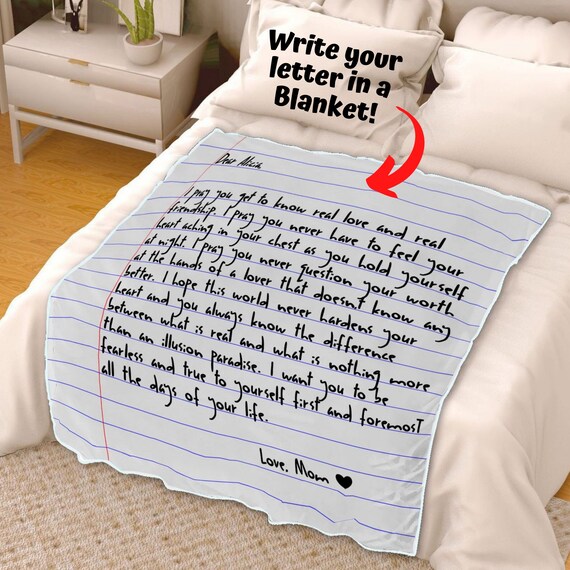 Write your
letter in a
Blanket!
Dear Alicia,
I pray you get to know real love and real
friendship. I pray you never have to feel your
heart aching in your chest as you hold yourself
at night. I pray you never question your worth
at the hands of a lover that doesn't know any
better. I hope this world never hardens your
heart and you always know the difference
between what is real and what is nothing more
than an illusion paradise. I want you to be
fearless and true to yourself first and foremost
all the days of your life.
Love, Mom